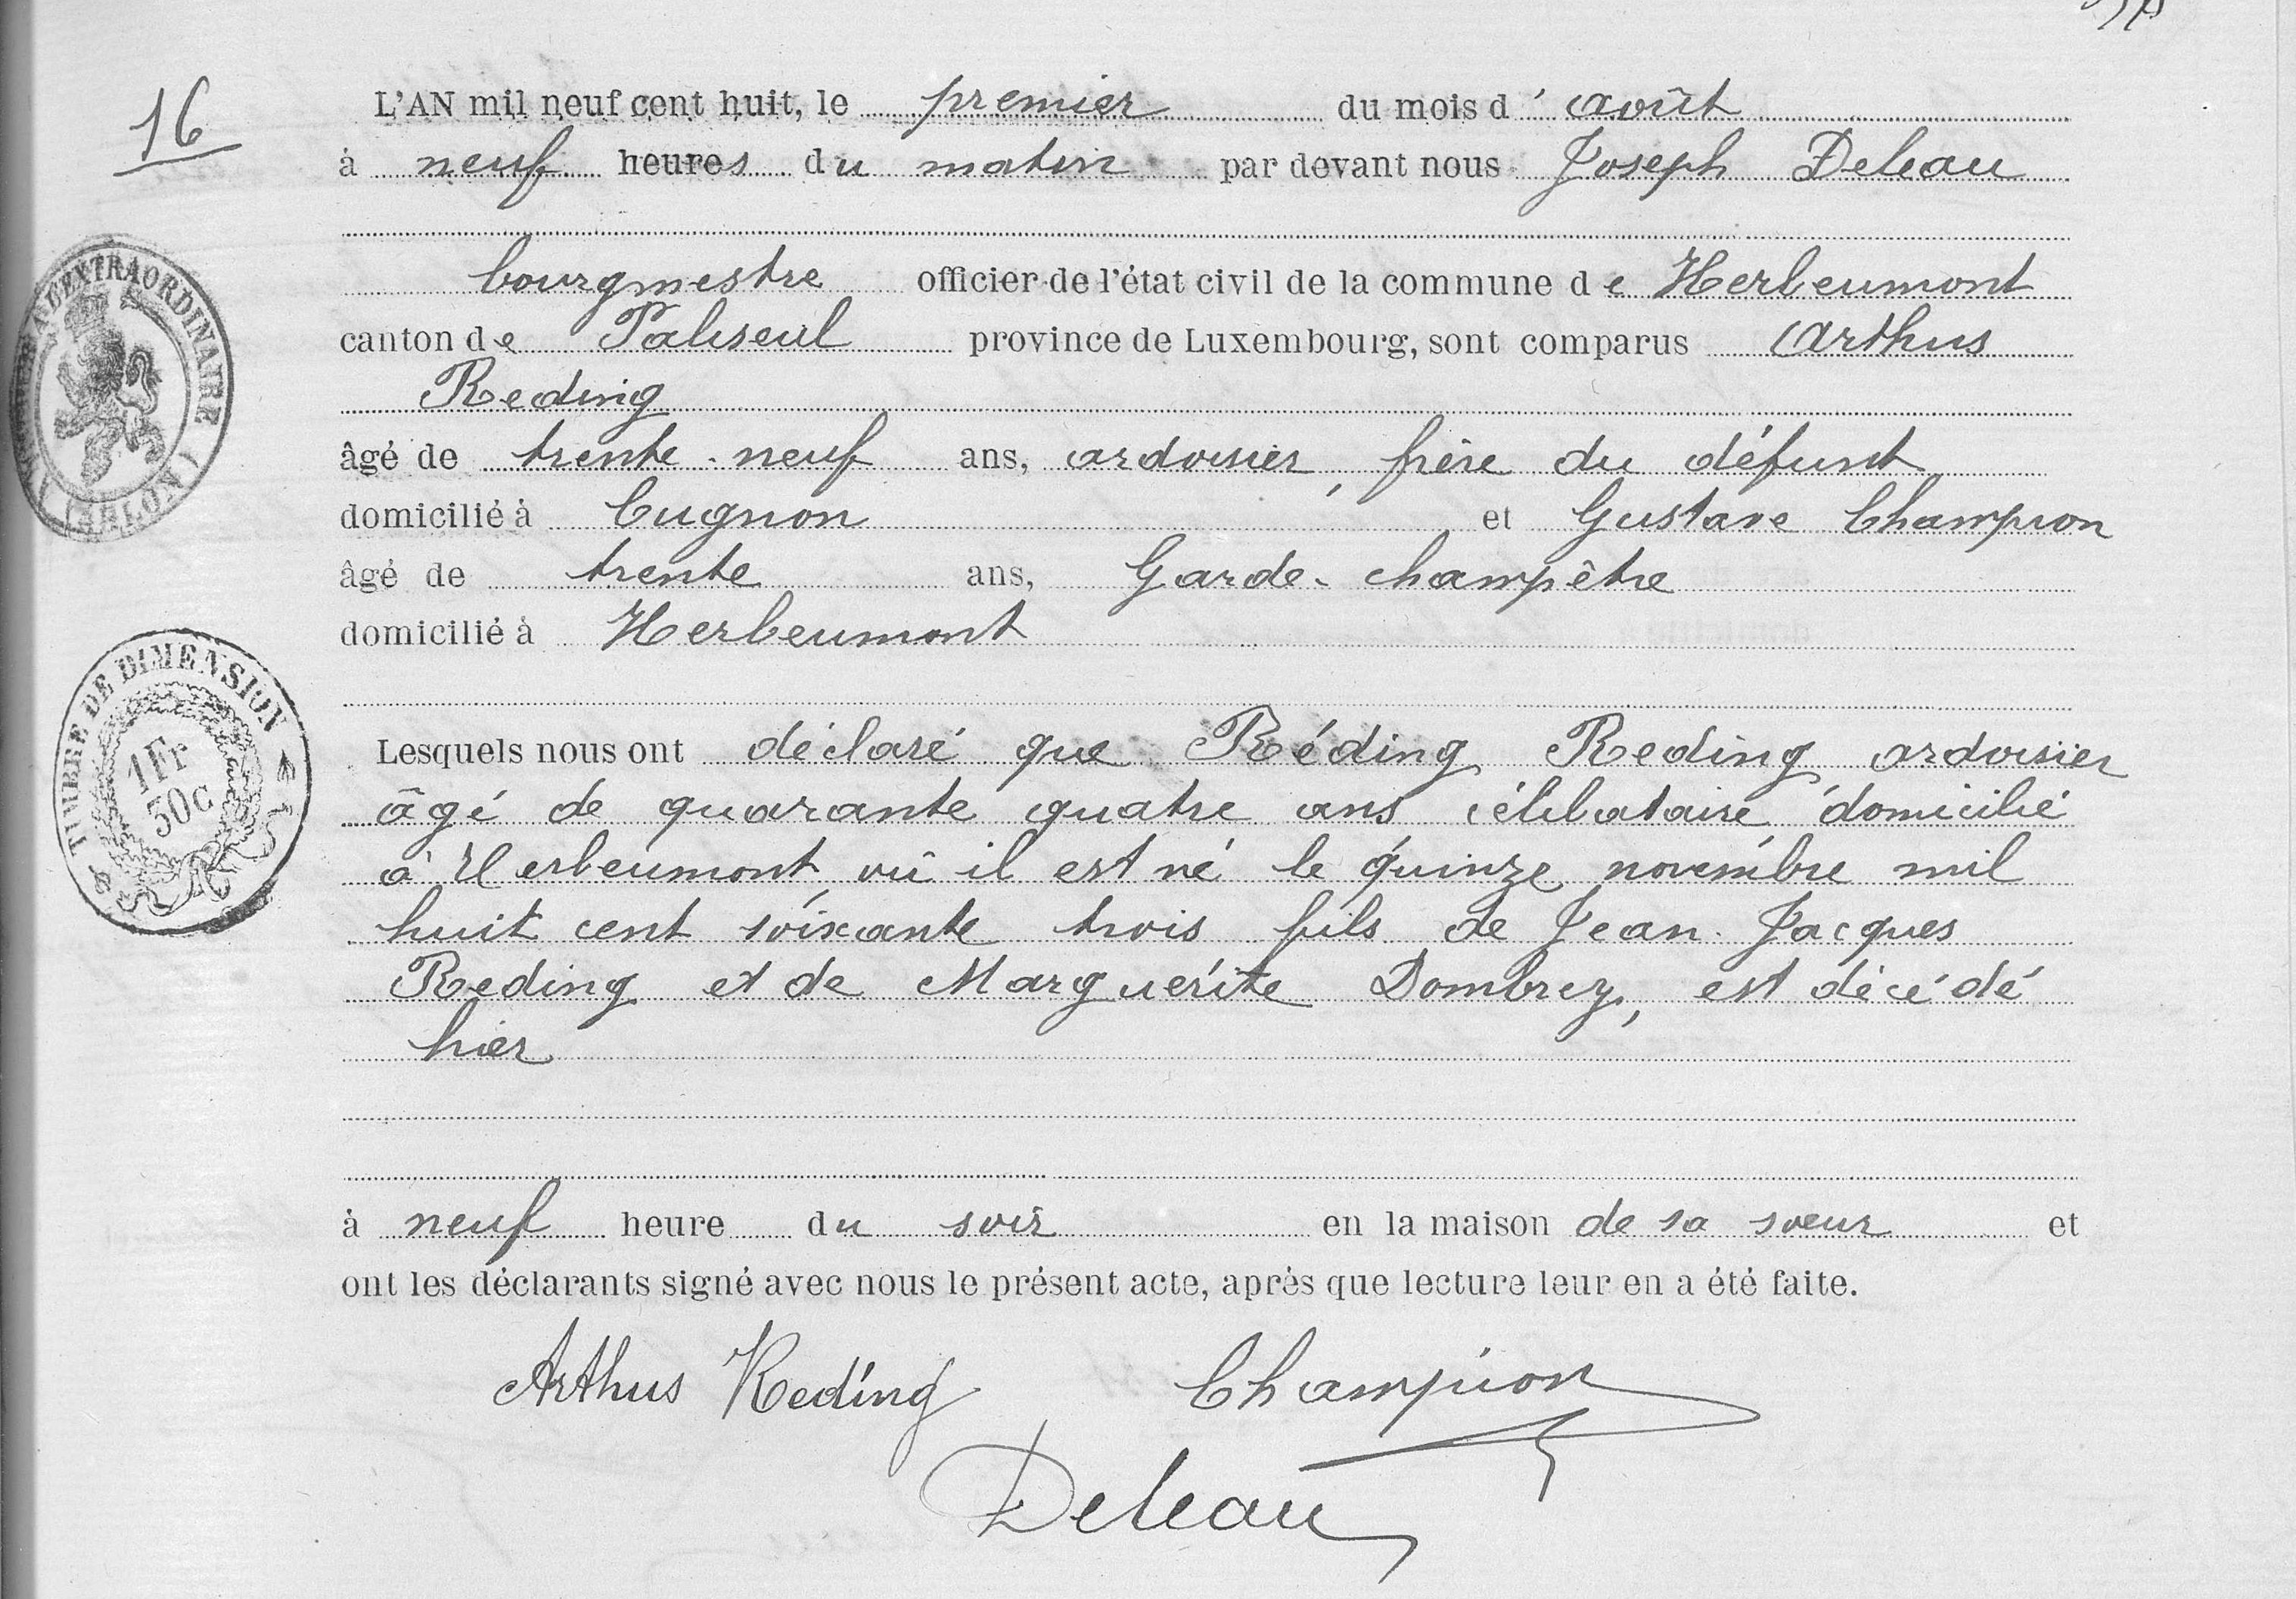 16
L'AN mil neuf cent huit, le premier du mois d'août
à neuf heures du matin par devant nous Joseph Deleau
bourgmestre officier de l'état civil de la commune de Herbeumont
canton de Paliseul province de Luxembourg, sont comparus Arthus
Reding
âgé de trente-neuf ans, ardoisier, frère du défunt
domicilié à Cugnon et Gustave Champion
âgé de trente ans, Garde-champêtre
domicilié à Herbeumont
Lesquels nous ont déclaré que Réding Reding ardoisier
âgé de quarante quatre ans célibataire domicilié
à Herbeumont où il est né le quinze novembre mil
huit cent soixante trois fils de Jean-Jacques
Reding et de Marguerite Dombrey, est décédé
hier
à neuf heure du soir en la maison de sa soeur et
ont les déclarants signé avec nous le présent acte, après que lecture leur en a été faite.
Arthus Reding Champion
Deleau
EXTRAORDINAIRE
(NOTRE)
TIMBRE DE DIMENSION
1Fr
50c